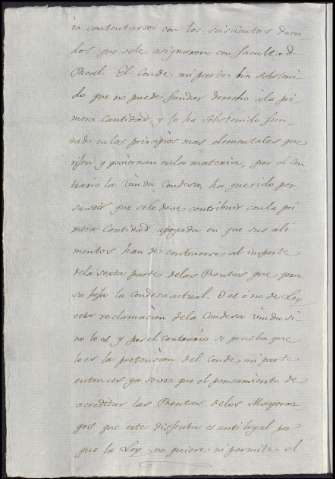 en contentarse con los seiscientos duca
dos que se le asignaron con facultad
Real. El conde, mi parte ha sosteni
do que no puede fundar derecho à la pri
mera cantidad, y lo ha sostenido fun
dado en los principios mas elementales que
rigen y gobiernan en la materia, por el con
trario la viuda condesa, ha querido per
suadir que se le deve contribuir con la pri
mera cantidad apoyada en que sus ali
mentos han de contraerse al importe
de la sexta parte de las Rentas que goza
su hijo la conde actual. O es o no de Ley
esta reclamacion de la Condesa viuda si
no lo es, y por el contrario se prueba que
lo es la pretencion del conde, mi parte
entonces ya se ve que el pensamiento de
acreditar las Rentas de los Mayoraz
gos que este disfruta es antilegal por
que la Ley no quiere, ni permite el